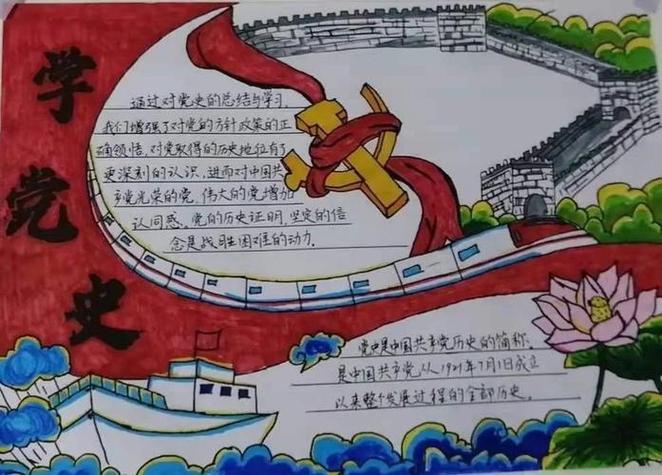 学党史
通过对党史的总结与学习,
我们增强了对党的方针政策的正
确领悟,对党取得的历史地位有了
更深刻的认识,进而对中国共
产党光荣的党,伟大的党增加
认同感。党的历史证明,坚定的信
念是战胜困难的动力.
党史是中国共产党历史的简称,
是中国共产党从1921年7月1日成立
以来整个发展过程的全部历史。